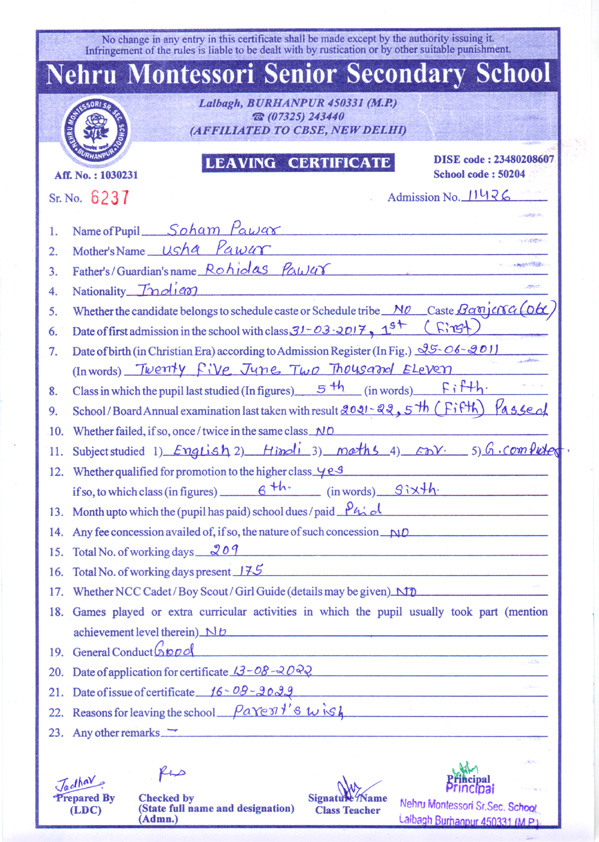 No change in any entry in this certificate shall be made except by the authority issuing it.
Infringement of the rules is liable to be dealt with by rustication or by other suitable punishment.
Nehru Montessori Senior Secondary School
Lalbagh, BURHANPUR 450331 (M.P.)
☎ (07325) 243440
(AFFILIATED TO CBSE, NEW DELHI)
NEHRU MONTESSORI SR. SEC. SCHOOL
BURHANPUR
LEAVING CERTIFICATE
DISE code : 23480208607
Aff. No. : 1030231
School code : 50204
Sr. No. 6237
Admission No. 11426
1. Name of Pupil Soham Pawar
2. Mother's Name Usha Pawar
3. Father's / Guardian's name Rohidas Pawar
4. Nationality Indian
5. Whether the candidate belongs to schedule caste or Schedule tribe NO Caste Banjara (obc)
6. Date of first admission in the school with class 31-03-2017, 1st (First)
7. Date of birth (in Christian Era) according to Admission Register (In Fig.) 25-06-2011
(In words) Twenty Five June Two Thousand Eleven
8. Class in which the pupil last studied (In figures) 5th (in words) Fifth.
9. School / Board Annual examination last taken with result 2021-22, 5th (Fifth) Passed
10. Whether failed, if so, once / twice in the same class NO
11. Subject studied 1) English 2) Hindi 3) maths 4) Env. 5) G. computer.
12. Whether qualified for promotion to the higher class yes
if so, to which class (in figures) 6th. (in words) Sixth.
13. Month upto which the (pupil has paid) school dues / paid Paid
14. Any fee concession availed of, if so, the nature of such concession NO
15. Total No. of working days 209
16. Total No. of working days present 175
17. Whether NCC Cadet / Boy Scout / Girl Guide (details may be given) NO
18. Games played or extra curricular activities in which the pupil usually took part (mention
achievement level therein) No
19. General Conduct Good
20. Date of application for certificate 13-08-2022
21. Date of issue of certificate 16-09-2022
22. Reasons for leaving the school Parent's wish
23. Any other remarks —
Jadhav
Prepared By
(LDC)
Checked by
(State full name and designation)
(Admn.)
Signature / Name
Class Teacher
Principal
Principal
Nehru Montessori Sr. Sec. School
Lalbagh Burhanpur 450331 (M.P.)